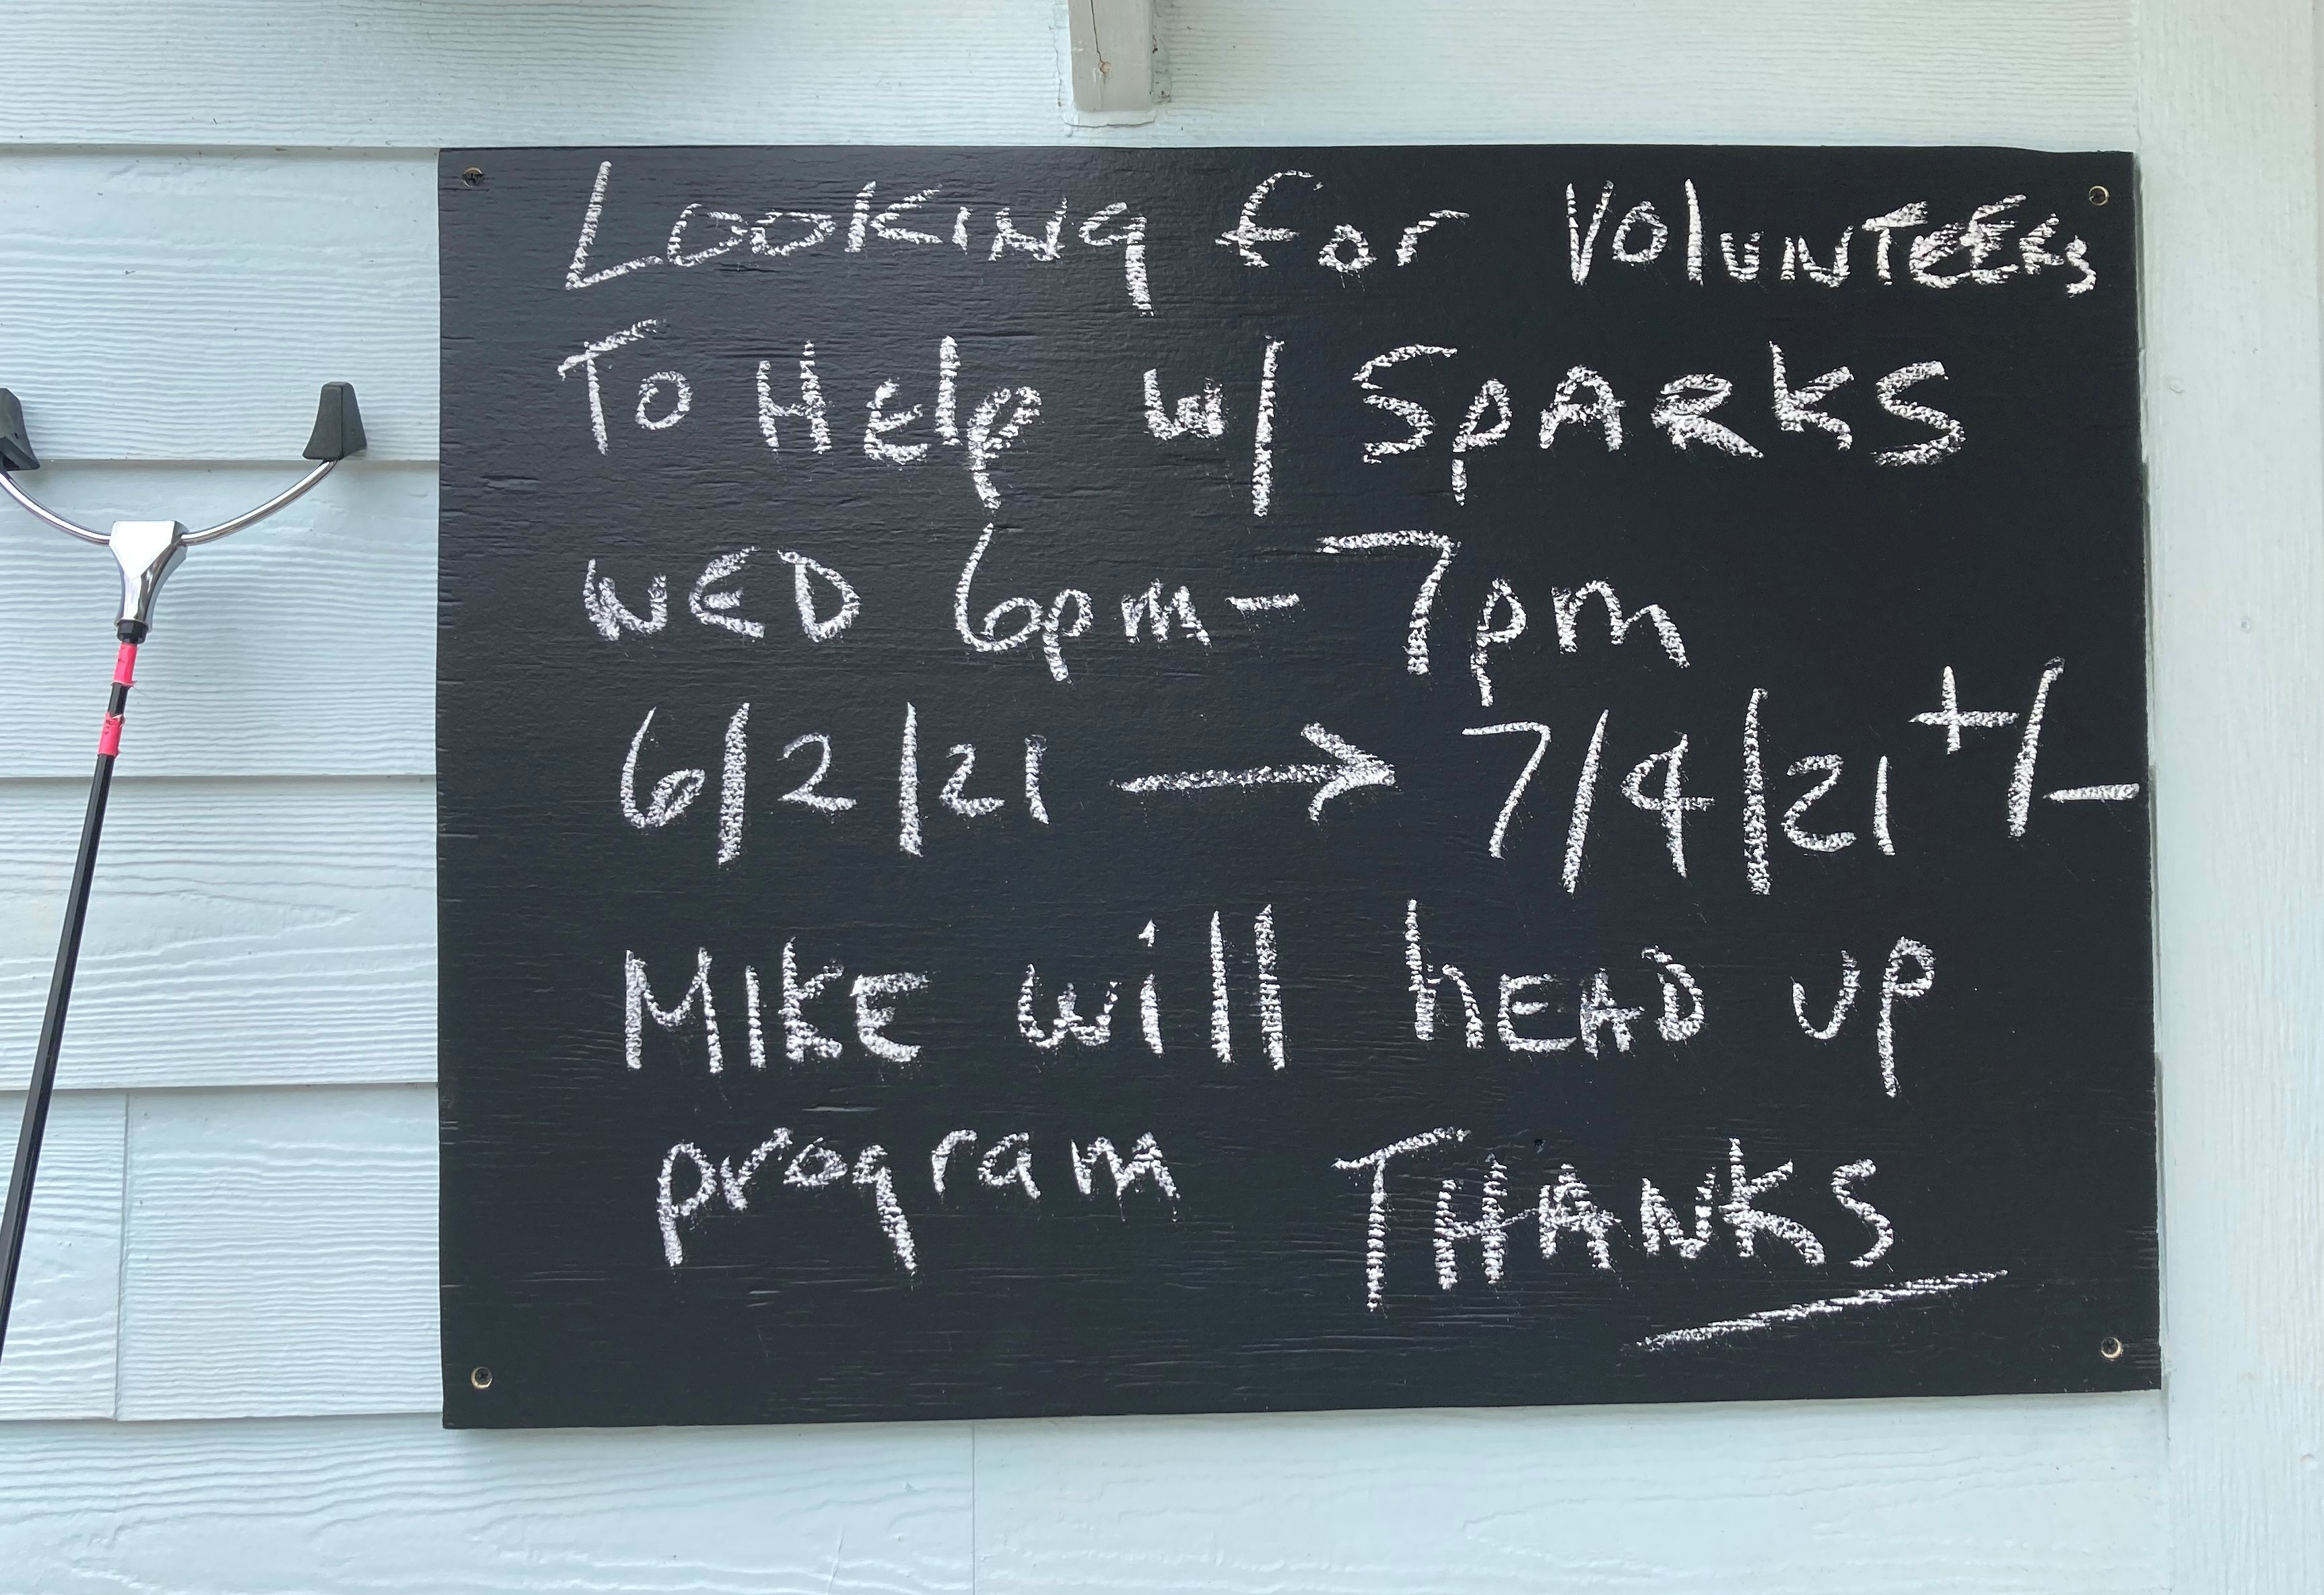 Looking for Volunteers
To Help w/ SpARKS
WED 6pm - 7pm
6/2/21 → 7/4/21 +/-
MIKE will hEAD up
program THANKS